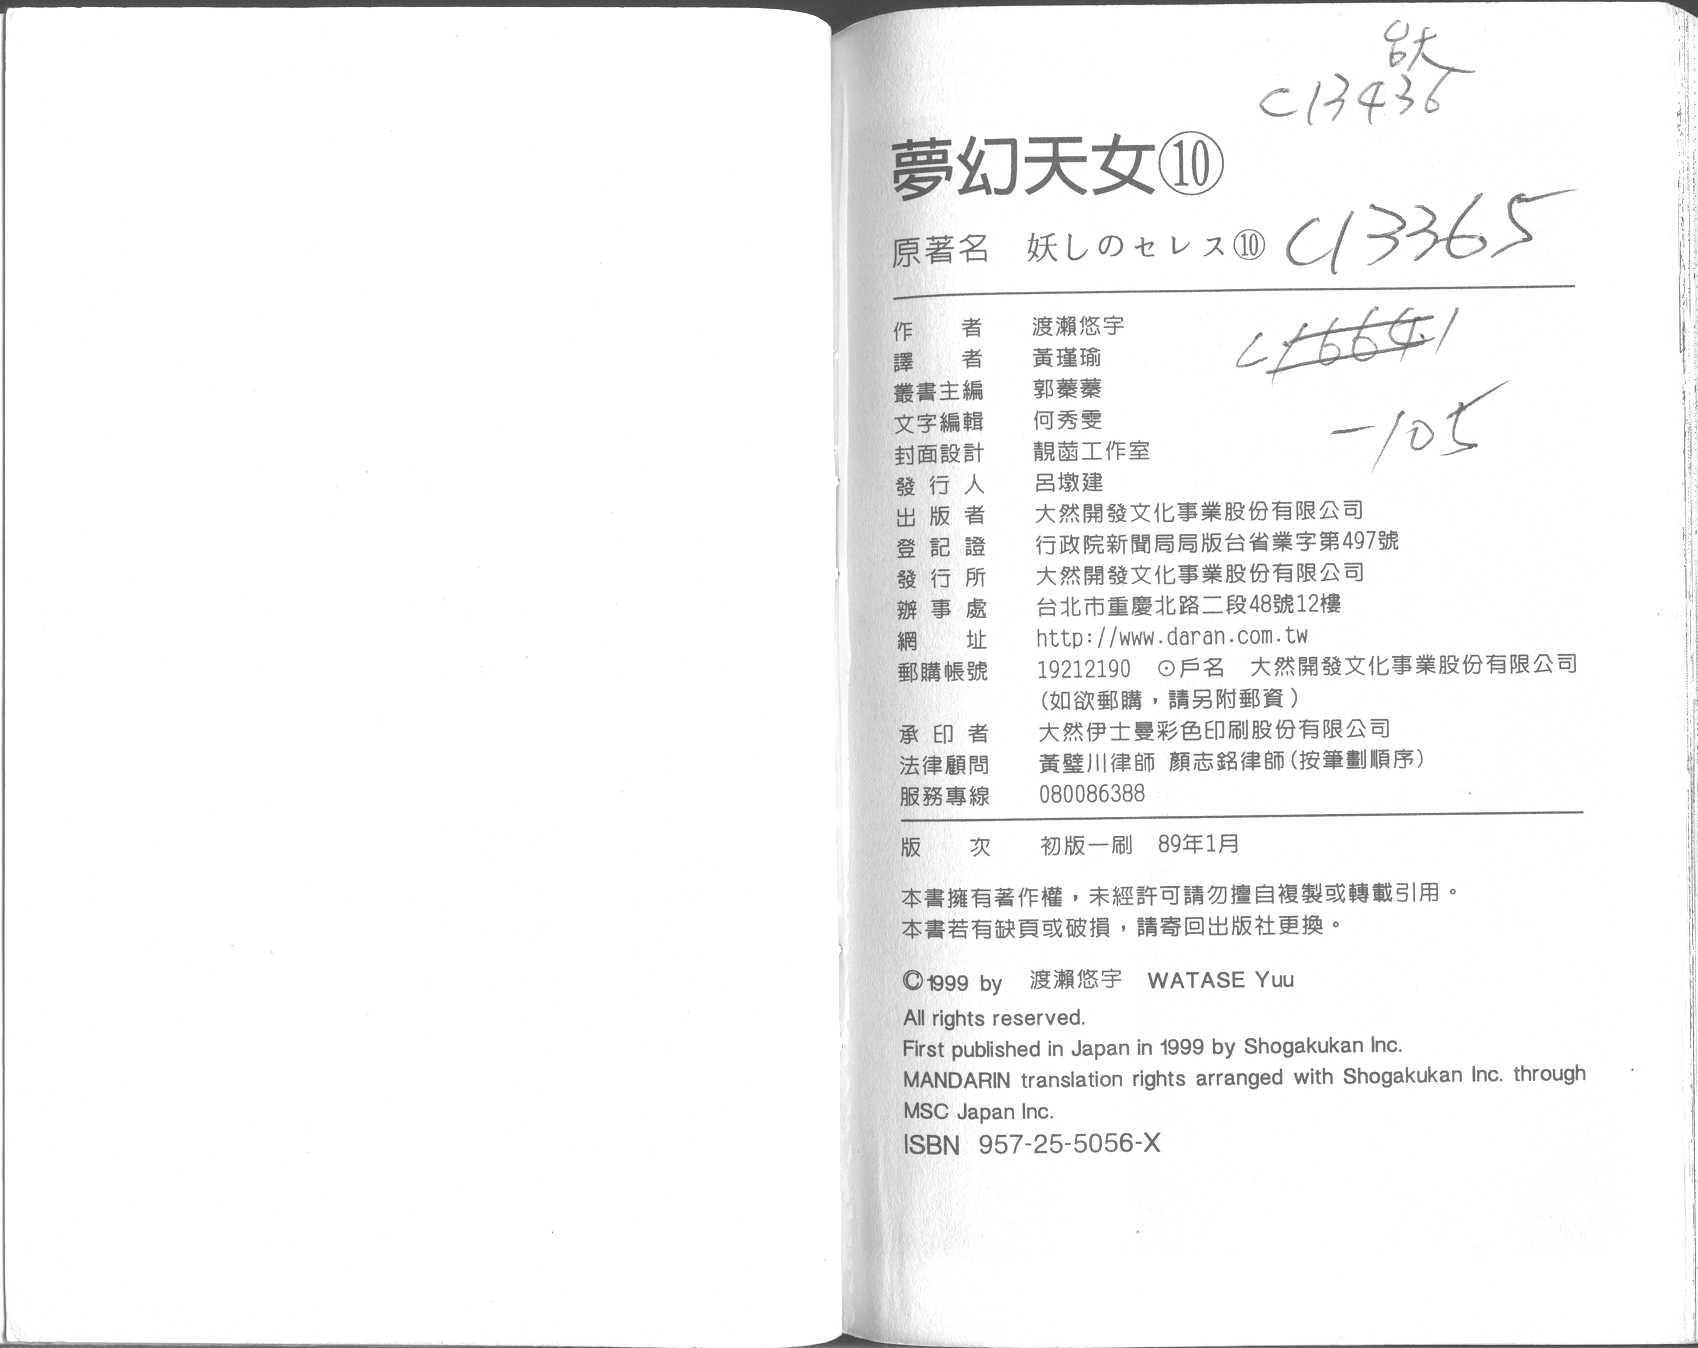 台大
C13436
夢幻天女⑩
原著名 妖しのセレス⑩
C13365
作者 渡瀨悠宇
C16641
譯者 黃瑾瑜
叢書主編 郭蓁蓁
文字編輯 何秀雯
-105
封面設計 靚菡工作室
發行人 呂墩建
出版者 大然開發文化事業股份有限公司
登記證 行政院新聞局局版台省業字第497號
發行所 大然開發文化事業股份有限公司
辦事處 台北市重慶北路二段48號12樓
網址 http://www.daran.com.tw
郵購帳號 19212190 ⊙戶名 大然開發文化事業股份有限公司
(如欲郵購，請另附郵資)
承印者 大然伊士曼彩色印刷股份有限公司
法律顧問 黃璧川律師 顏志銘律師(按筆劃順序)
服務專線 080086388
版次 初版一刷 89年1月
本書擁有著作權，未經許可請勿擅自複製或轉載引用。
本書若有缺頁或破損，請寄回出版社更換。
©1999 by 渡瀨悠宇 WATASE Yuu
All rights reserved.
First published in Japan in 1999 by Shogakukan Inc.
MANDARIN translation rights arranged with Shogakukan Inc. through
MSC Japan Inc.
ISBN 957-25-5056-X